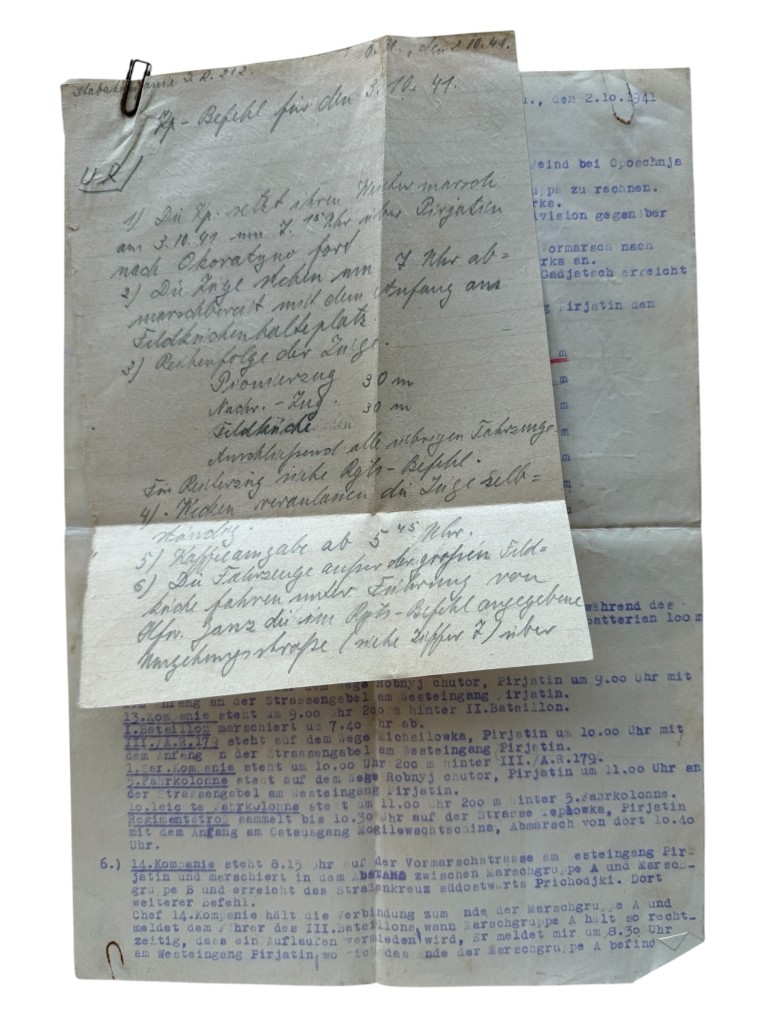 Stabskompanie J.R. 212.
O.U., den 2.10.41.
Kp-Befehl für den 3.10.41.
1) Die Kp. setzt ihren Weitermarsch
am 3.10.41 um 7.15 Uhr über Pirjatin
nach Okoratyno fort
2) Die Züge stehen um 7 Uhr ab=
marschbereit mit dem Anfang am
Feldküchenhalteplatz.
3) Reihenfolge der Züge.
Pionierzug 30 m
Nachr.-Zug. 30 m
Feldküche
Anschließend alle übrigen Fahrzeuge.
Für Reiterzug siehe Rgts-Befehl.
4) Wecken veranlassen die Züge selb=
ständig.
5) Kaffeeausgabe ab 5 45 Uhr.
6) Die Fahrzeuge außer der großen Feld=
küche fahren unter Führung von
Ofw. Janz die im Rgts-Befehl angegebene
Umgehungsstraße (siehe Ziffer 7) über
u., den 2.10.1941
Feind bei Oposchnja
uppe zu rechnen.
rka.
ivision gegenüber
Vormarsch nach
rka an.
Gadjatsch erreicht
Pirjatin den
m
m
m
m
m
m
m
während des
Batterien 100 m
dem Wege Robnyj chutor, Pirjatin um 9.00 Uhr mit
dem Anfang an der Strassengabel am Westeingang Pirjatin.
13.Kompanie steht um 9.00 Uhr 200 m hinter II.Bataillon.
I.Bataillon marschiert um 7.40 Uhr ab.
III./A.R.179 steht auf dem Wege Michailowka, Pirjatin um 10.00 Uhr mit
dem Anfang n der Strassengabel am Westeingang Pirjatin.
1.San.Kompanie steht um 10.00 Uhr 200 m hinter III./A.R.179.
5.Fahrkolonne steht auf dem Wege Robnyj chutor, Pirjatin um 11.00 Uhr an
der Strassengabel am Westeingang Pirjatin.
10.leichte Fahrkolonne steht um 11.00 Uhr 200 m hinter 5.Fahrkolonne.
Regimentstroß sammelt bis 10.30 Uhr auf der Strasse Teplowka, Pirjatin
mit dem Anfang am Ostausgang Mogilewschtschina, Abmarsch von dort 10.40
Uhr.
6.) 14.Kompanie steht 8.15 Uhr auf der Vormarschstrasse am Westeingang Pir-
jatin und marschiert in dem Abstand zwischen Marschgruppe A und Marsch-
gruppe B und erreicht das Straßenkreuz südostwärts Prichodjki. Dort
weiterer Befehl.
Chef 14.Kompanie hält die Verbindung zum nde der Marschgruppe A und
meldet dem Führer des III.Bataillons, wann Marschgruppe A hält so recht-
zeitig, dass ein Auflaufen vermieden wird, Er meldet mir um 8.30 Uhr
am Westeingang Pirjatin, wo sich das nde der Marschgruppe A befind